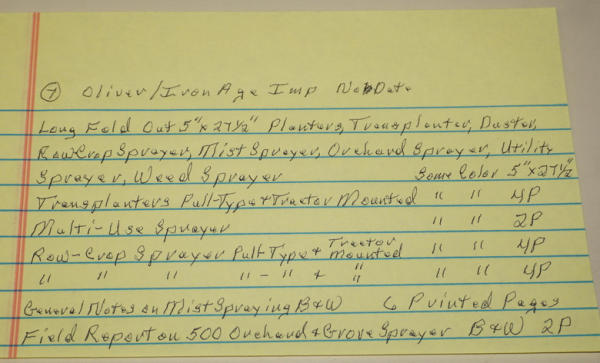 ⑦ Oliver/Iron Age Imp No Date
Long Fold Out 5" x 27½" Planters, Transplanter, Duster,
Row Crop Sprayer, Mist Sprayer, Orchard Sprayer, Utility
Sprayer, Weed Sprayer Some Color 5" x 27½"
Transplanters Pull-Type + Tractor Mounted " " 4P
Multi-Use Sprayer " " 2P
Row-Crop Sprayer Pull-Type + Tractor Mounted " " 4P
" " " " - " + " " " " 4P
General Notes on Mist Spraying B&W 6 Printed Pages
Field Report on 500 Orchard & Grove Sprayer B&W 2P